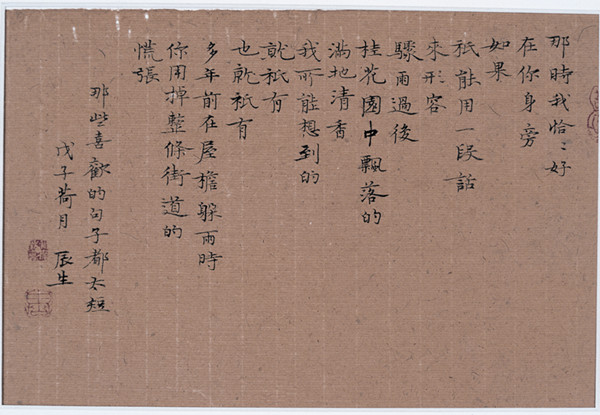 那時我恰〻好
在你身旁
如果
祇能用一段話
來形容
驟雨過後
桂花園中飄落的
滿地清香
我所能想到的
就祇有
也就祇有
多年前在屋檐躲雨時
你用掉整條街道的
慌張
那些喜歡的句子都太短
戊子荷月 辰生